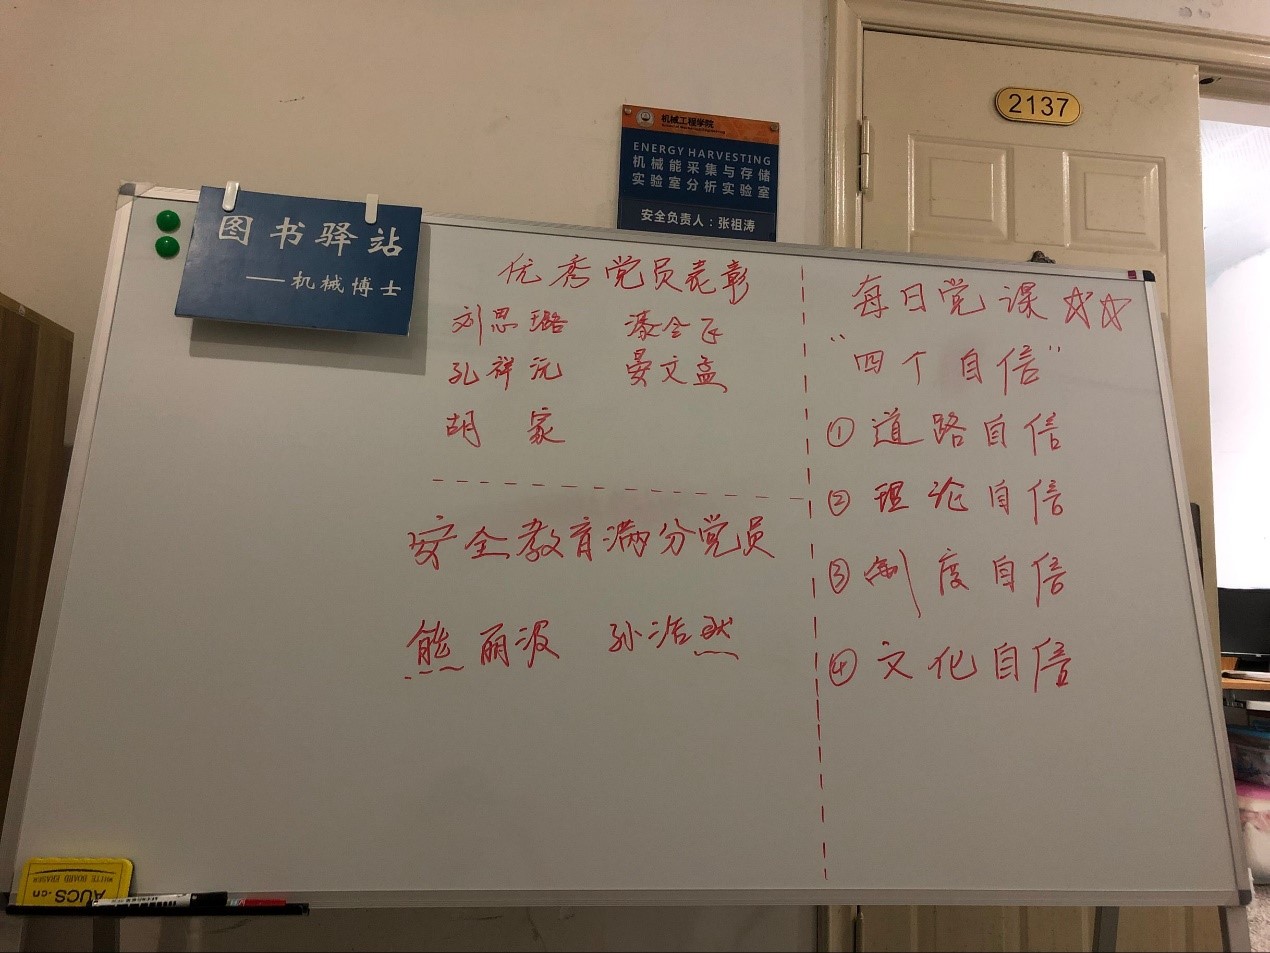 2137
机械工程学院
ENERGY HARVESTING
机械能采集与存储
实验室分析实验室
安全负责人：张祖涛
图书驿站
——机械博士
优秀党员表彰
刘思璐 潘会飞
孔祥沅 晏文孟
胡家
安全教育满分党员
熊丽波 孙浩然
每日党课☆☆
"四个自信"
①道路自信
②理论自信
③制度自信
④文化自信
AUCS.cn
WHITE BOARD ERASER